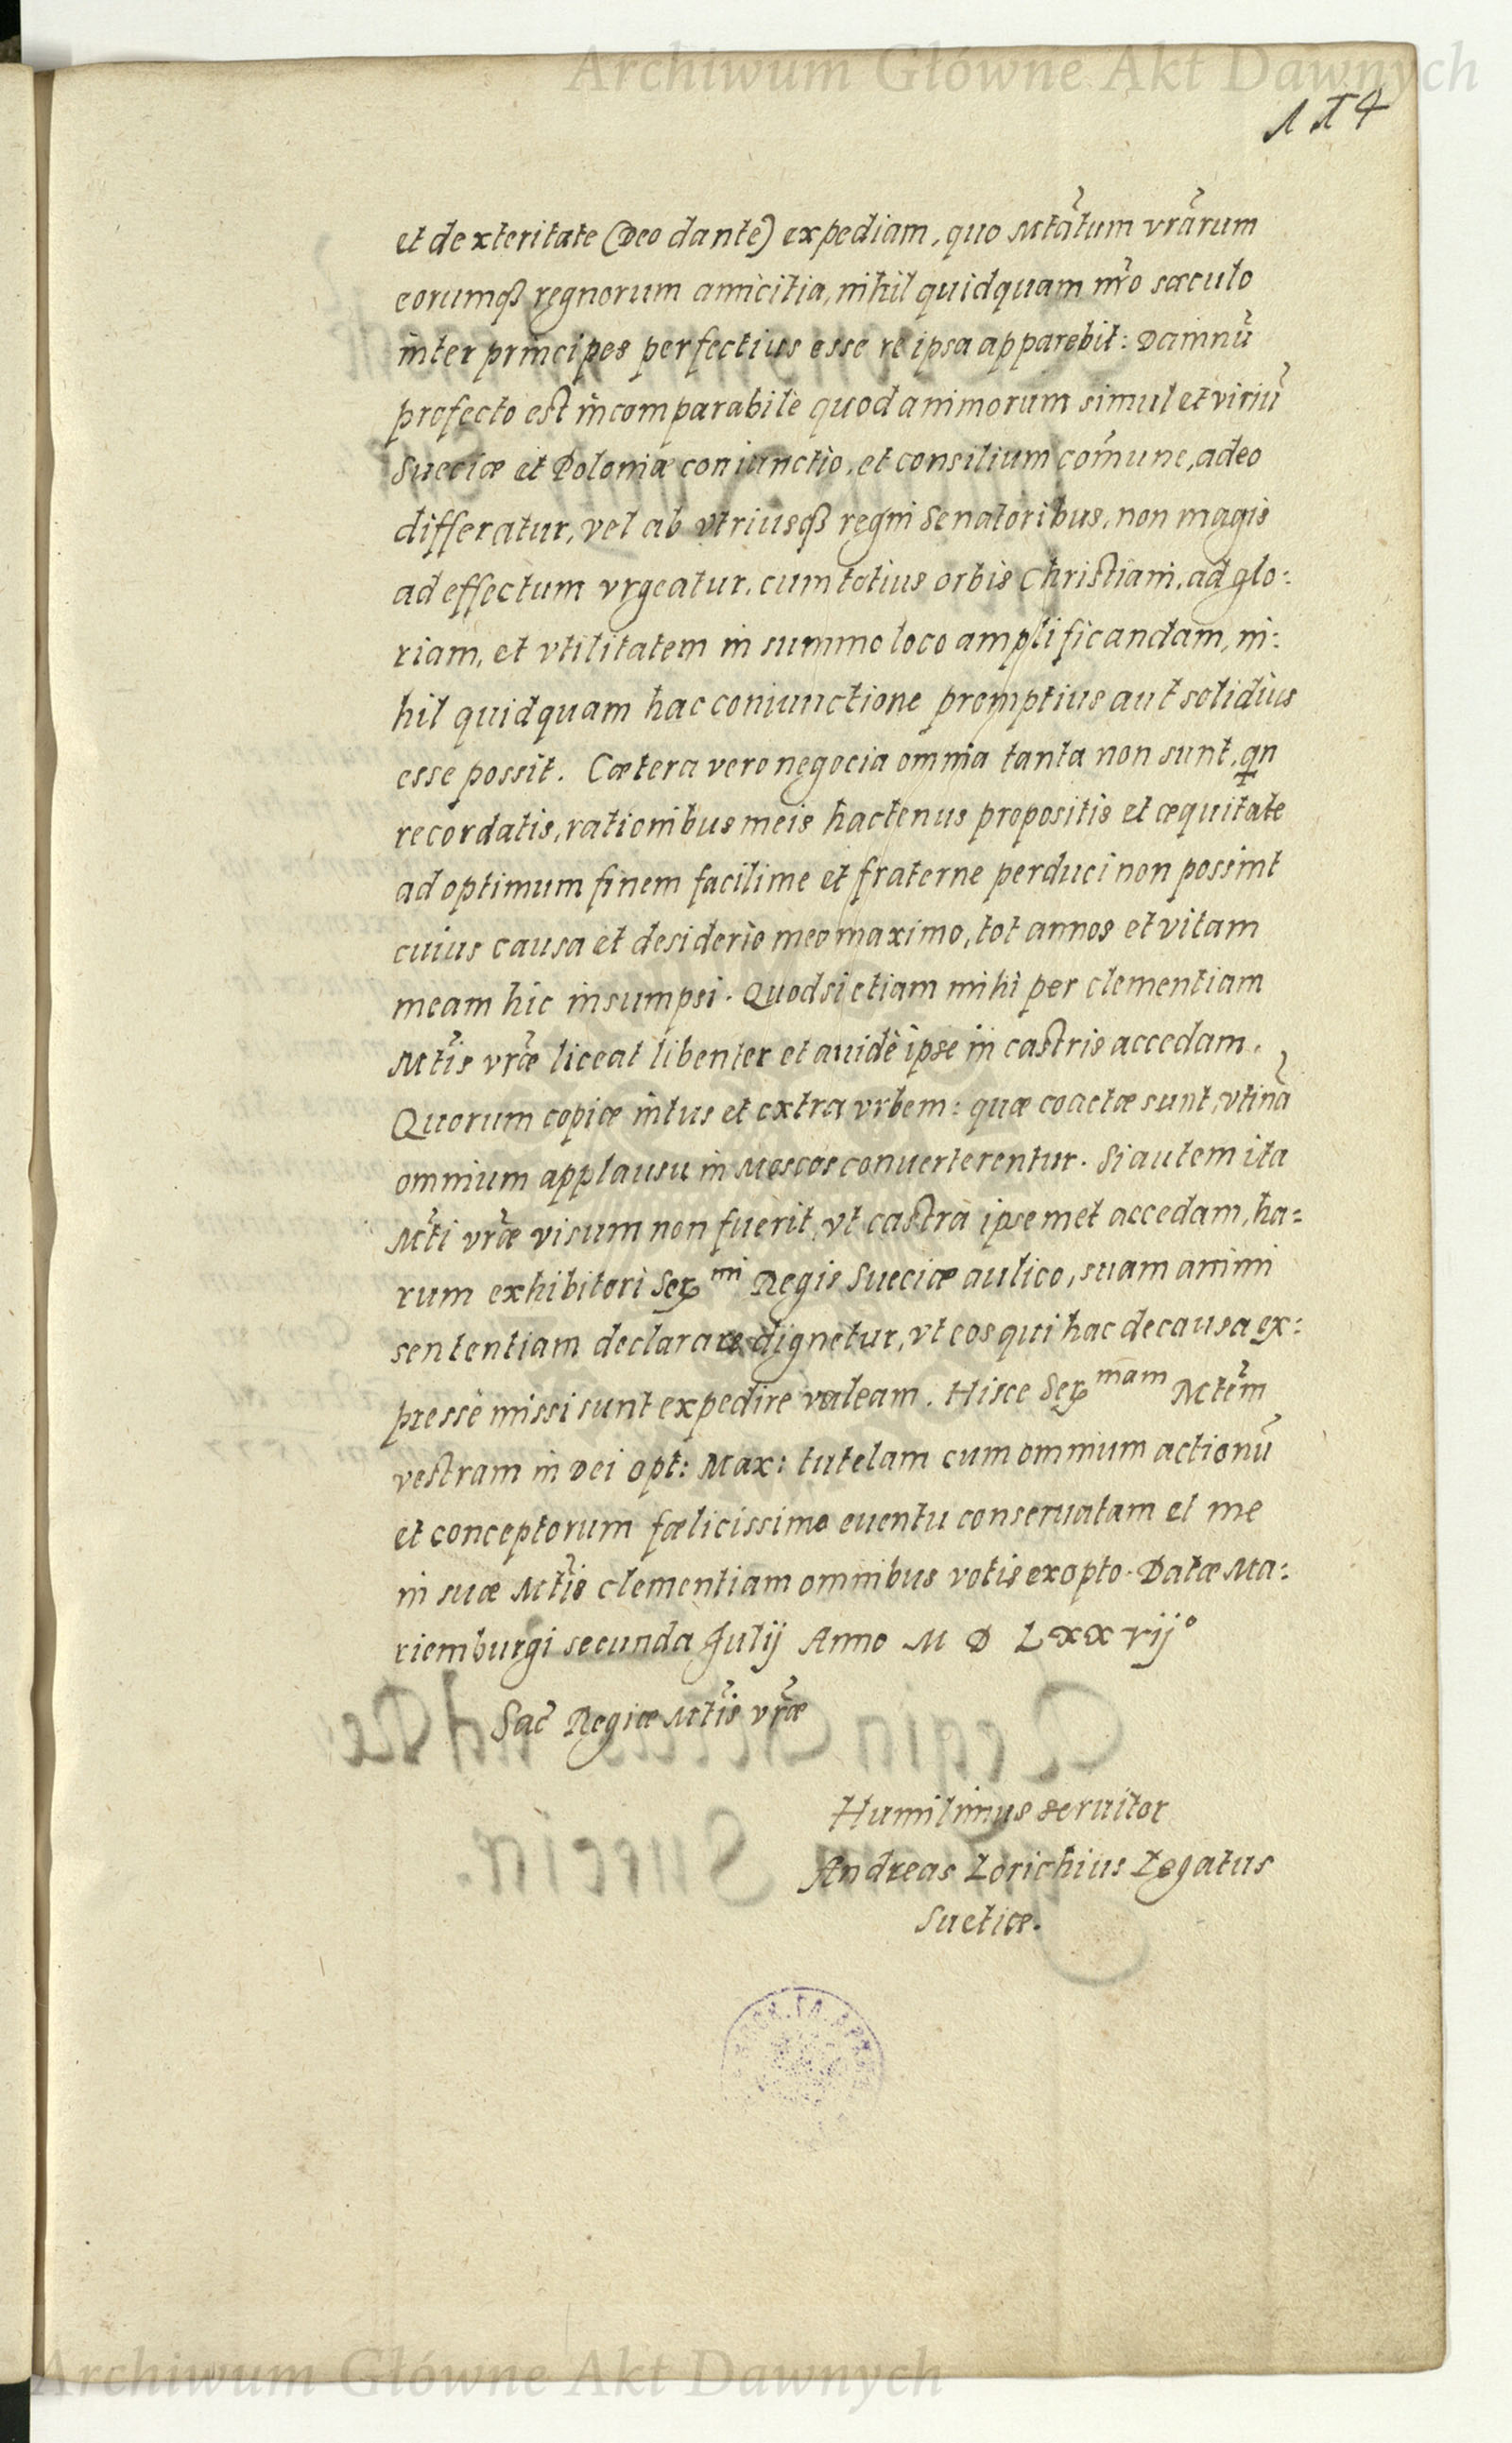 Archiwum Główne Akt Dawnych
114
et dexteritate (Deo dante) expediam, quo Mtãtum vrãrum
eorumqȝ regnorum amicitia, nihil quidquam nr̃o sæculo
inter principes perfectius esse re ipsa apparebit: Damnũ
profecto est incomparabile quod animorum simul et viriũ
Sueciæ et Poloniæ coniunctio, et consilium com̃une, adeo
differatur, vel ab vtriusqȝ regni Senatoribus, non magis
ad effectum vrgeatur, cum totius orbis Christiani, ad glo:
riam, et vtilitatem in summo loco amplificandam, ni:
hil quidquam hac coniunctione promptius aut solidius
esse possit. Cætera vero negocia omnia tanta non sunt, qn
recordatis, rationibus meis hactenus propositis et æquitate
ad optimum finem facilime et fraterne perduci non possint
cuius causa et desiderio meo maximo, tot annos et vitam
meam hic insumpsi. Quodsi etiam mihi per clementiam
Mtis̃ vrãe liceat libenter et auidè ipse in castris accedam.
Quorum copiæ intus et extra vrbem: quæ coactæ sunt, vtinã
omnium applausu in Moscos conuerterentur. Si autem ita
Mt̃i vrãe visum non fuerit, vt castra ipsemet accedam, ha=
rum exhibitori Serᵐⁱ Regis Sueciæ aulico, suam animi
sententiam declarare dignetur, vt eos qui hac de causa ex:
pressè missi sunt expedire valeam. Hisce Serᵐᵃᵐ Mtem̃
vestram in Dei opt: Max: tutelam cum omnium actionũ
et conceptorum fœlicissimo euentu conseruatam et me
in suæ Mtis̃ clementiam omnibus votis exopto. Datæ Ma:
riemburgi secunda Julij Anno M D Lxxvij°
Sac̃ Regiæ Mtis̃ vrãe
Humilimus seruitor
Andreas Lorichius Legatus
Sueticæ.
Archiwum Główne Akt Dawnych